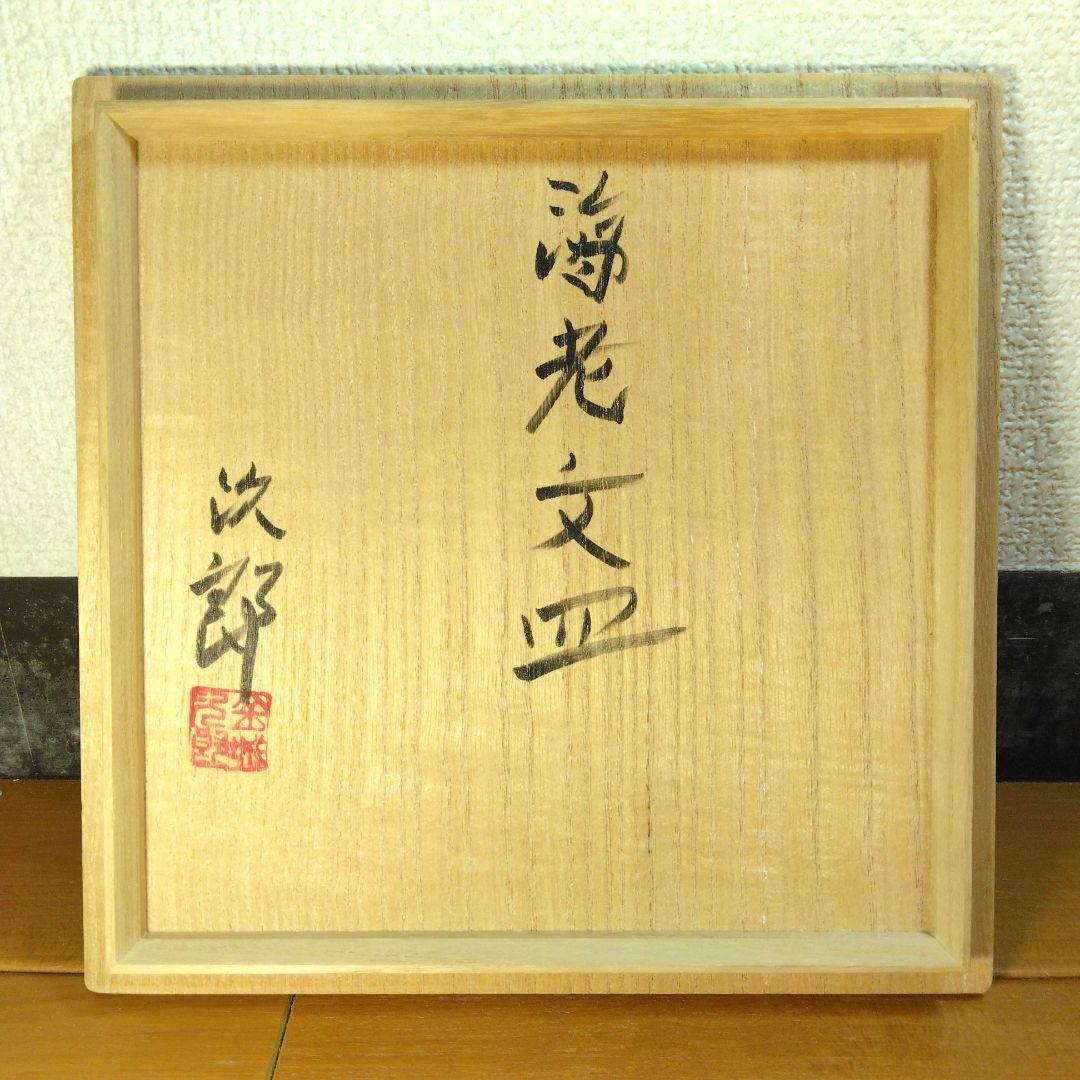 海老文皿
次郎